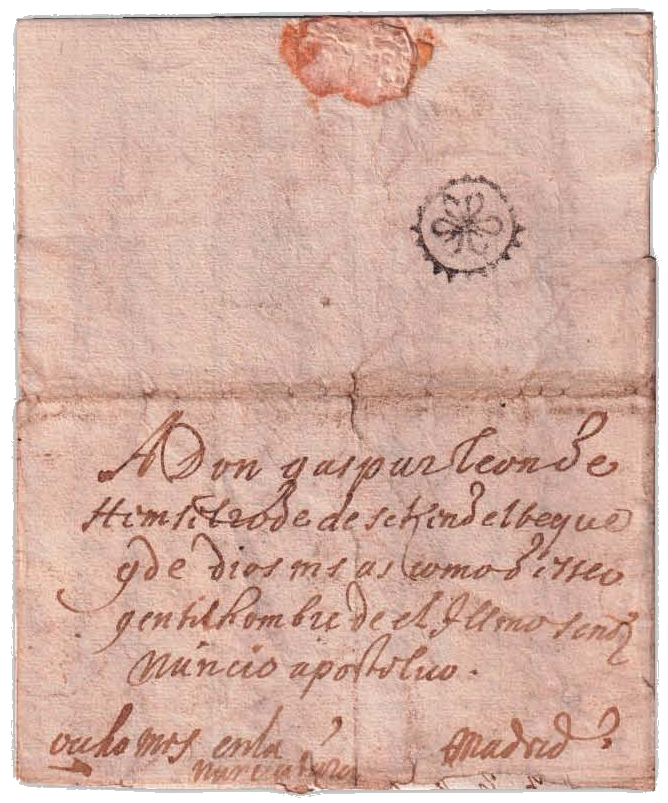 A Don gaspar leon de
Himsilrode de schindelbeque
gde dios ms as como desseo
gentilhombre de el Illmo señor
nuncio apostolico.
ocho mrs en la Madrid
nunciatura